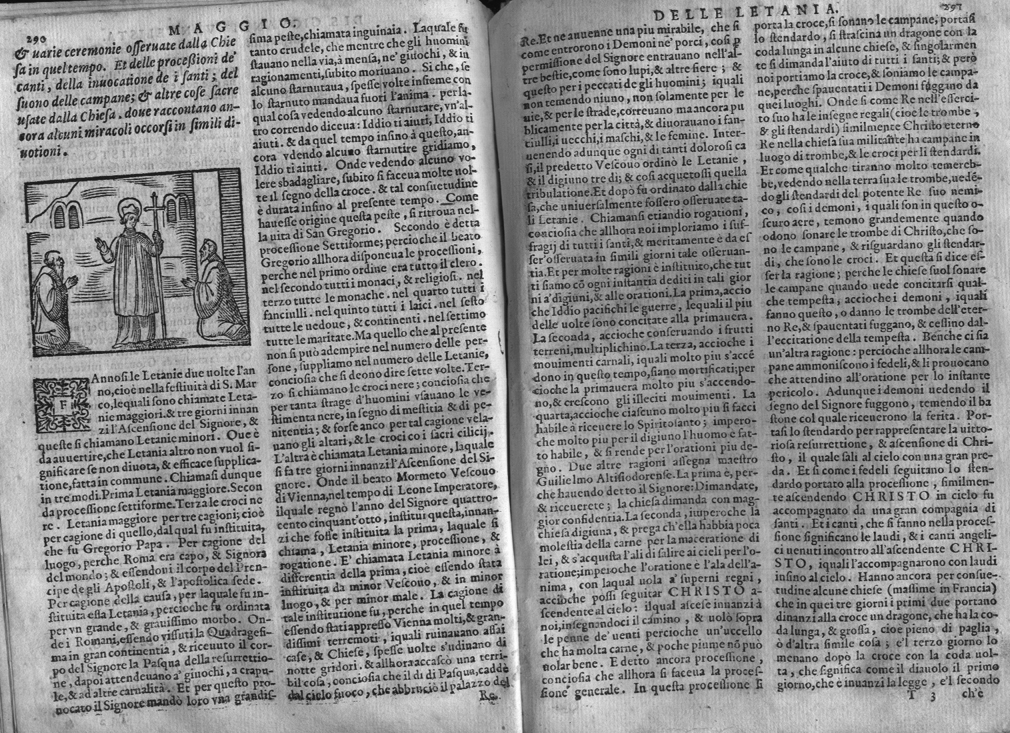 290
MAGGIO.
& uarie ceremonie osseruate dalla Chie
sa in quel tempo. Et delle proceßioni de'
canti, della inuocatione de i santi; del
suono delle campane; & altre cose sacre
usate dalla Chiesa. doue raccontano an-
cora alcuni miracoli occorsi in simili di-
uotioni.
FAnnosi le Letanie due uolte l'an
no, cioè nella festiuità di S. Mar
co, lequali sono chiamate Leta-
nie maggiori. & tre giorni innan
zi l'Ascensione del Signore, &
queste si chiamano Letanie minori. Oue è
da auuertire, che Letania altro non vuol si-
gnificare se non diuota, & efficace supplica-
tione, fatta in commune. Chiamasi dunque
in tre modi. Prima Letania maggiore. Secon
da processione settiforme. Terza le croci ne
re. Letania maggiore per tre cagioni; cioè
per cagione di quello, dal qual fu instituita,
che fu Gregorio Papa. Per cagione del
luogo, perche Roma era capo, & Signora
del mondo; & essendoui il corpo del Pren-
cipe de gli Apostoli, & l'apostolica sede.
Per cagione della causa, per laquale fu in-
stituita essa Letania, percioche fu ordinata
per vn grande, & grauissimo morbo. On-
de i Romani, essendo vissuti la Quadragesi-
ma in gran continentia, & riceuuto il cor-
po del Signore la Pasqua della resurrettio-
ne, dapoi attendeuano a' giuochi, a crapu-
le, & ad altre carnalità. Et per questo pro-
uocato il Signore mandò loro vna grandis-
sima peste, chiamata inguinaia. Laquale fu
tanto crudele, che mentre che gli huomini
stauano nella via, à mensa, ne' giuochi, & in
ragionamenti, subito moriuano. Si che, se
alcuno starnutaua, spesse volte insieme con
lo starnuto mandaua fuori l'anima. per la-
qual cosa vedendo alcuno starnutare, vn'al-
tro correndo diceua: Iddio ti aiuti, Iddio ti
aiuti. & da quel tempo insino à questo, an-
cora vdendo alcuno starnutire gridiamo,
Iddio ti aiuti. Onde vedendo alcuno vo-
lere sbadagliare, subito si faceua molte uol-
te il segno della croce. & tal consuetudine
è durata insino al presente tempo. Come
hauesse origine questa peste, si ritroua nel-
la uita di San Gregorio. Secondo è detta
processione Settiforme; percioche il beato
Gregorio allhora disponeua le processioni,
perche nel primo ordine era tutto il clero.
nel secondo tutti i monaci, & religiosi. nel
terzo tutte le monache. nel quarto tutti i
fanciulli. nel quinto tutti i laici. nel sesto
tutte le uedoue, & continenti. nel settimo
tutte le maritate. Ma quello che al presente
non si può adempire nel numero delle per-
sone, suppliamo nel numero delle Letanie,
conciosia che si deono dire sette volte. Ter-
zo si chiamano le croci nere; conciosia che
per tanta strage d'huomini vsauano le ve-
stimenta nere, in segno di mestitia & di pe-
nitentia; & forse anco per tal cagione vela-
uano gli altari, & le croci co i sacri cilicij.
L'altra è chiamata Letania minore, laquale
si fa tre giorni innanzi l'Ascensione del Si-
gnore. Onde il beato Mormeto Vescouo
di Vienna, nel tempo di Leone Imperatore,
ilquale regnò l'anno del Signore quattro-
cento cinquant'otto, institui questa, innan-
zi che fosse instituita la prima, laquale si
chiama, Letania minore, processione, &
rogatione. E' chiamata Letania minore à
differentia della prima, cioè essendo stata
instituita da minor Vescouo, & in minor
luogo, & per minor male. La cagione di
tale institutione fu, perche in quel tempo
essendo stati appresso Vienna molti, & gran-
dissimi terremoti, iquali ruinauano assai
case, & Chiese, spesse volte s'udinano di
notte gridori. & allhora accascò una terri-
bil cosa, conciosia che il dì di Pasqua, cadde
dal cielo fuoco, che abbruciò il palazzo del
Re.
DELLE LETANIA.
291
Re. Et ne auuenne una piu mirabile, che si
come entrorono i Demoni ne' porci, cosi p
permissione del Signore entrauano nell'al-
tre bestie, come sono lupi, & altre fiere; &
questo per i peccati de gli huomini; iquali
non temendo niuno, non solamente per le
uie, & per le strade, correuano ma ancora pu
blicamente per la città, & diuorauano i fan-
ciulli, i uecchi, i maschi, & le femine. Inter-
uenendo adunque ogni dì tanti dolorosi ca
si, il predetto Vescouo ordinò le Letanie,
& il digiuno tre dì; & cosi acquetossi quella
tribulatione. Et dopò fu ordinato dalla chie
sa, che uniuersalmente fossero osseruate ta-
li Letanie. Chiamansi etiandio rogationi,
conciosia che allhora noi imploriamo i suf-
fragij di tutti i santi; & meritamente è da es
ser'osseruata in simili giorni tale osseruan-
tia. Et per molte ragioni è instituito, che tut
ti siamo cõ ogni instantia dediti in tali gior
ni a' digiuni, & alle orationi. La prima, accio
che Iddio pacifichi le guerre, lequali il piu
delle uolte sono concitate alla primauera.
La seconda, accioche conseruando i frutti
terreni, multiplichino. La terza, accioche i
mouimenti carnali, iquali molto piu s'accē
dono in questo tempo, siano mortificati; per
cioche la primauera molto piu s'accendo-
no, & crescono gli illeciti mouimenti. La
quarta, accioche ciascuno molto piu si facci
habile à riceuere lo Spirito santo; impero-
che molto piu per il digiuno l'huomo è fat-
to habile, & si rende per l'orationi piu de-
gno. Due altre ragioni assegna maestro
Guilielmo Altisiodorense. La prima è, per-
che hauendo detto il Signore: Dimandate,
& riceuerete; la chiesa dimanda con mag-
gior confidentia. La seconda, imperoche la
chiesa digiuna, & prega ch'ella habbia poca
molestia della carne per la maceratione di
lei, & s'acquista l'ali di salire ai cieli per l'o-
ratione; imperoche l'oratione è l'ala dell'a-
nima, con laqual uola a' superni regni,
accioche possi seguitar CHRISTO a-
scendente al cielo: ilqual ascese inuanzi à
noi, insegnandoci il camino, & uolò sopra
le penne de' uenti percioche un'uccello
che ha molta carne, & poche piume nõ può
uolar bene. E detto ancora processione,
conciosia che allhora si faceua la proces-
sione generale. In questa processione si
porta la croce, si sonano le campane, portasi
lo stendardo, si strascina un dragone con la
coda lunga in alcune chiese, & singolarmen
te si dimanda l'aiuto di tutti i santi; & però
noi portiamo la croce, & soniamo le campa-
ne, perche spauentati i Demoni fuggano da
quei luoghi. Onde si come Re nell'esserci-
to suo ha le insegne regali (cioè le trombe,
& gli stendardi) similmente Christo eterno
Re nella chiesa sua militante ha campane in
luogo di trombe, & le croci per li stendardi.
Et come qualche tiranno molto temereb-
be, vedendo nella terra sua le trombe, uedē-
do gli stendardi del potente Re suo nemi-
co, cosi i demoni, i quali son in questo o-
scuro aere, temono grandemente quando
odono sonare le trombe di Christo, che so-
no le campane, & risguardano gli stendar-
di, che sono le croci. Et questa si dice es-
ser la ragione; perche le chiese suol sonare
le campane quando uede concitarsi qual-
che tempesta, accioche i demoni, iquali
fanno questo, o danno le trombe dell'eter-
no Re, & spauentati fuggano, & cessino dal-
l'eccitatione della tempesta. Benche ci sia
un'altra ragione: percioe allhora le cam-
pane ammoniscono i fedeli, & li prouocano
che attendino all'oratione per lo instante
pericolo. Adunque i demoni uedendo il
segno del Signore fuggono, temendo il ba
stone col quale riceuerono la ferita. Por-
tasi lo stendardo per rappresentare la uitto-
riosa resurrettione, & ascensione di Chri-
sto, il quale salì al cielo con una gran pre-
da. Et si come i fedeli seguitano lo sten-
dardo portato alla processione, similmen-
te ascendendo CHRISTO in cielo fu
accompagnato da una gran compagnia di
santi. Et i canti, che si fanno nella proces-
sione significano le laudi, & i canti angeli-
ci uenuti incontro all'ascendente CHRI-
STO, iquali l'accompagnarono con laudi
insino al cielo. Hanno ancora per consue-
tudine alcune chiese (massime in Francia)
che in quei tre giorni i primi due portano
dinanzi alla croce un dragone, che ha la co-
da lunga, & grossa, cioe pieno di paglia,
ò d'altra simile cosa; e'l terzo giorno lo
menano dopò la croce con la coda uol-
ta, che significa come il diauolo il primo
giorno, che è inuanzi la legge, e'l secondo
T 3
ch'è